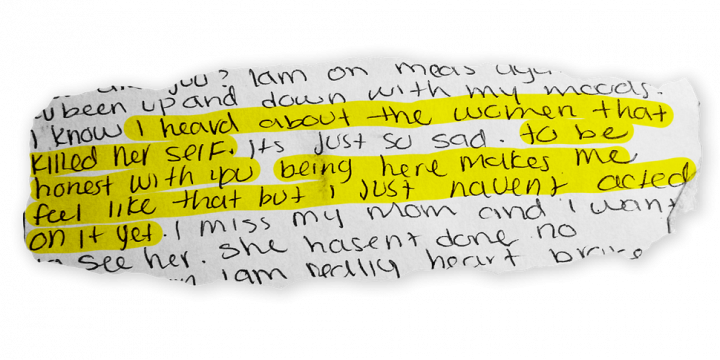 you? Iam on meds
been up and down with my moods.
I know I heard about the women that
killed her self. Its just so sad. to be
honest with you being here makes me
feel like that but i just havent acted
on it yet. I miss my mom and i want
see her. she hasent done no
iam really heart